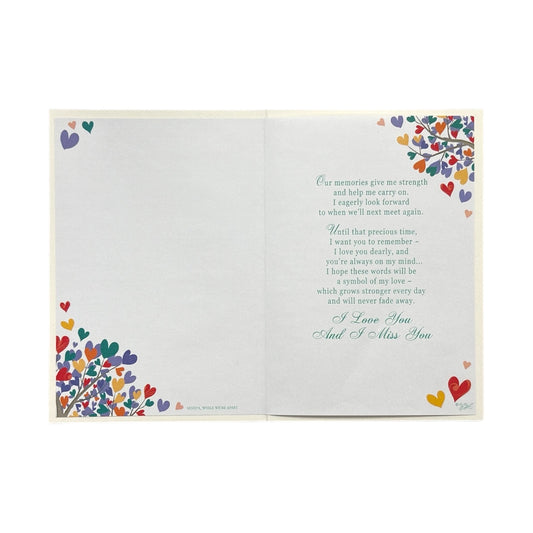 Our memories give me strength
and help me carry on.
I eagerly look forward
to when we'll next meet again.
Until that precious time,
I want you to remember –
I love you dearly, and
you're always on my mind...
I hope these words will be
a symbol of my love –
which grows stronger every day
and will never fade away.
I Love You
And I Miss You